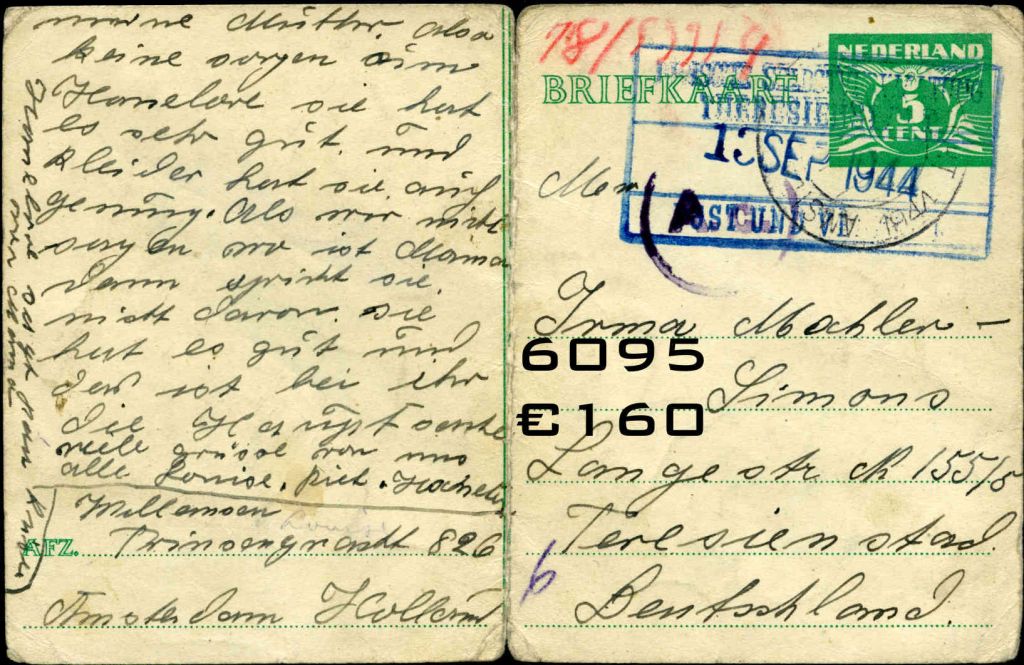 meine Mutter. Also
keine sorgen sim
Hanelore sie hat
es sehr gut. und
kleider hat sie auch
genung. Als wir nicht
sagen wo ist Mama
dann spricht sie
nicht davon. sie
hat es gut und
das ist bei ihr
die Haupt sache
viele grüsse von uns
alle Louise. Piet.
Hanelore sagt
Mama
Willemsen
AFZ. Prinsengracht 826
Amsterdam Holland
BRIEFKAART
NEDERLAND
5
CENT
THERESIEN
13 SEP 1944
POST UND V
Irma Mahler-
Simons
6095
€160
Langestr № 155/5
Teresienstad
Deutschland.
6